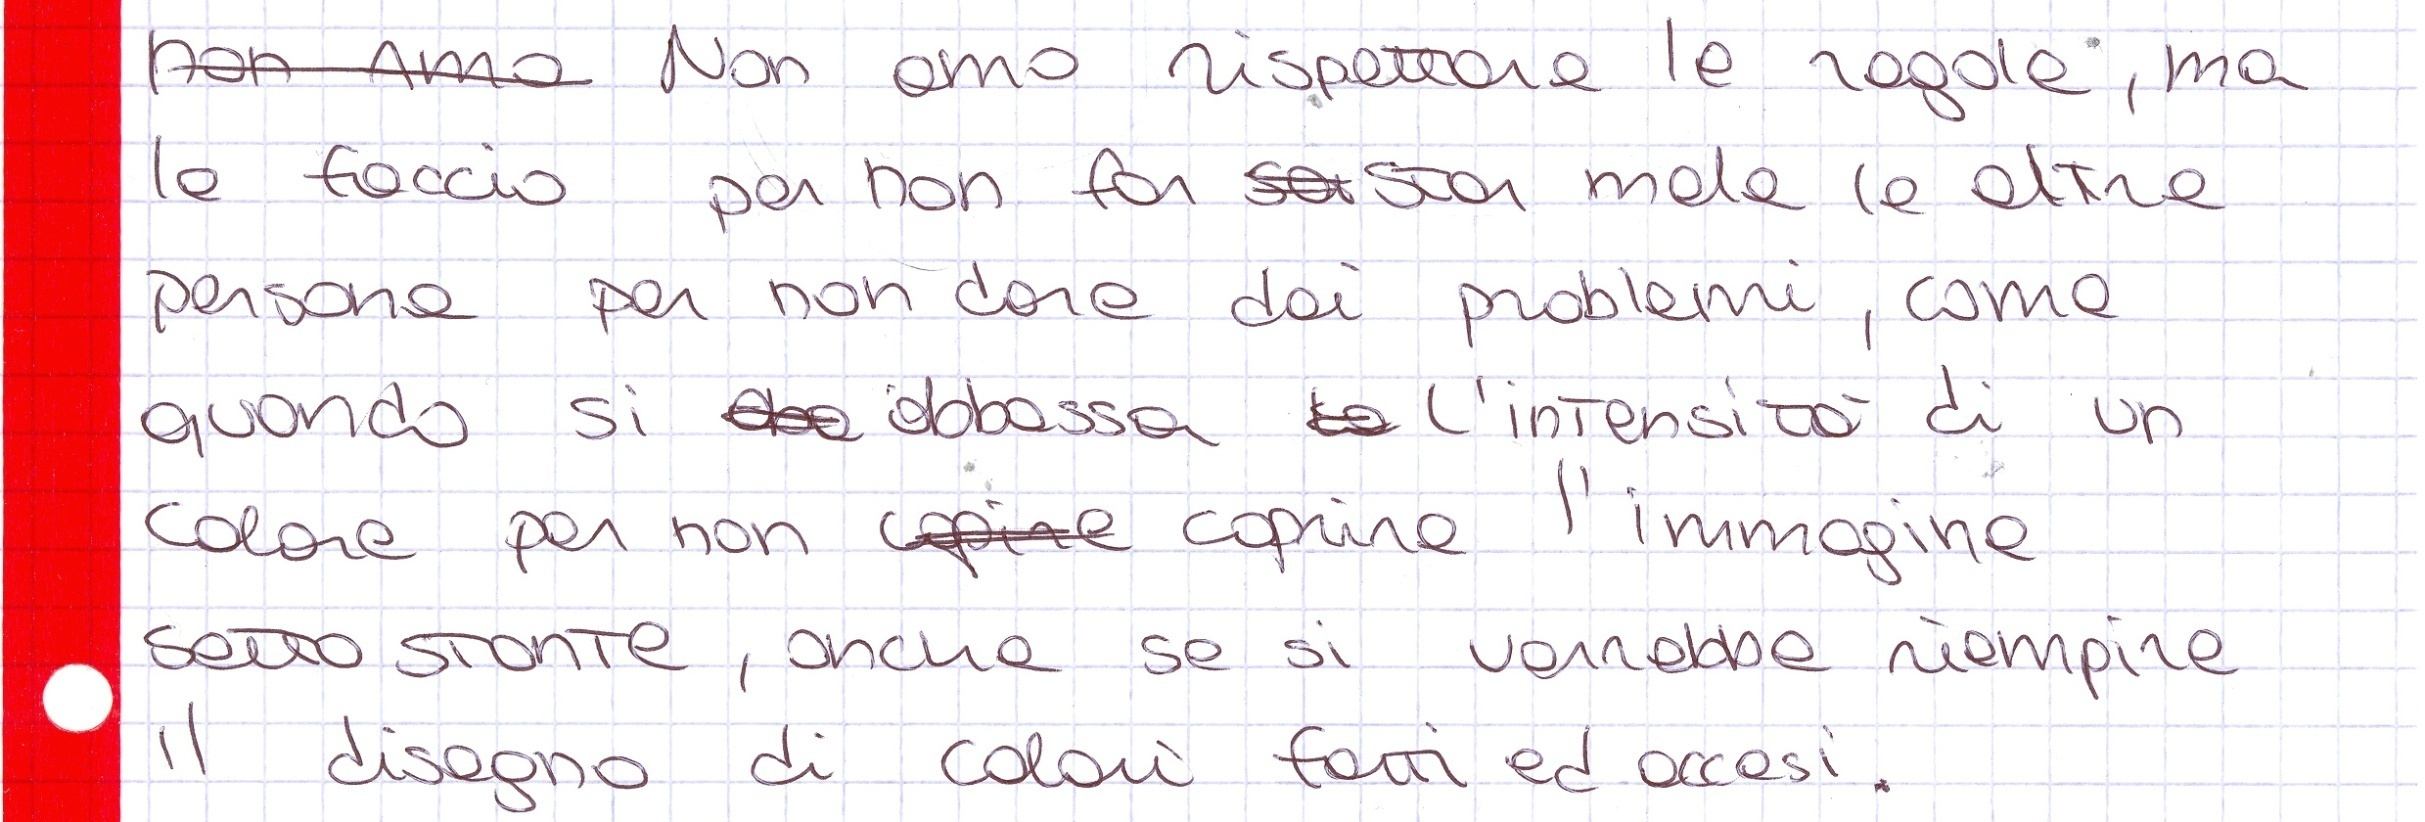 non Amo Non amo rispettare le regole, ma
le faccio per non far star male le altre
persone per non dare dei problemi, come
quando si abbassa l'intensità di un
colore per non copire coprire l'immagine
sotto stante, anche se si verrebbe riempire
il disegno di colori fatti ed accesi.